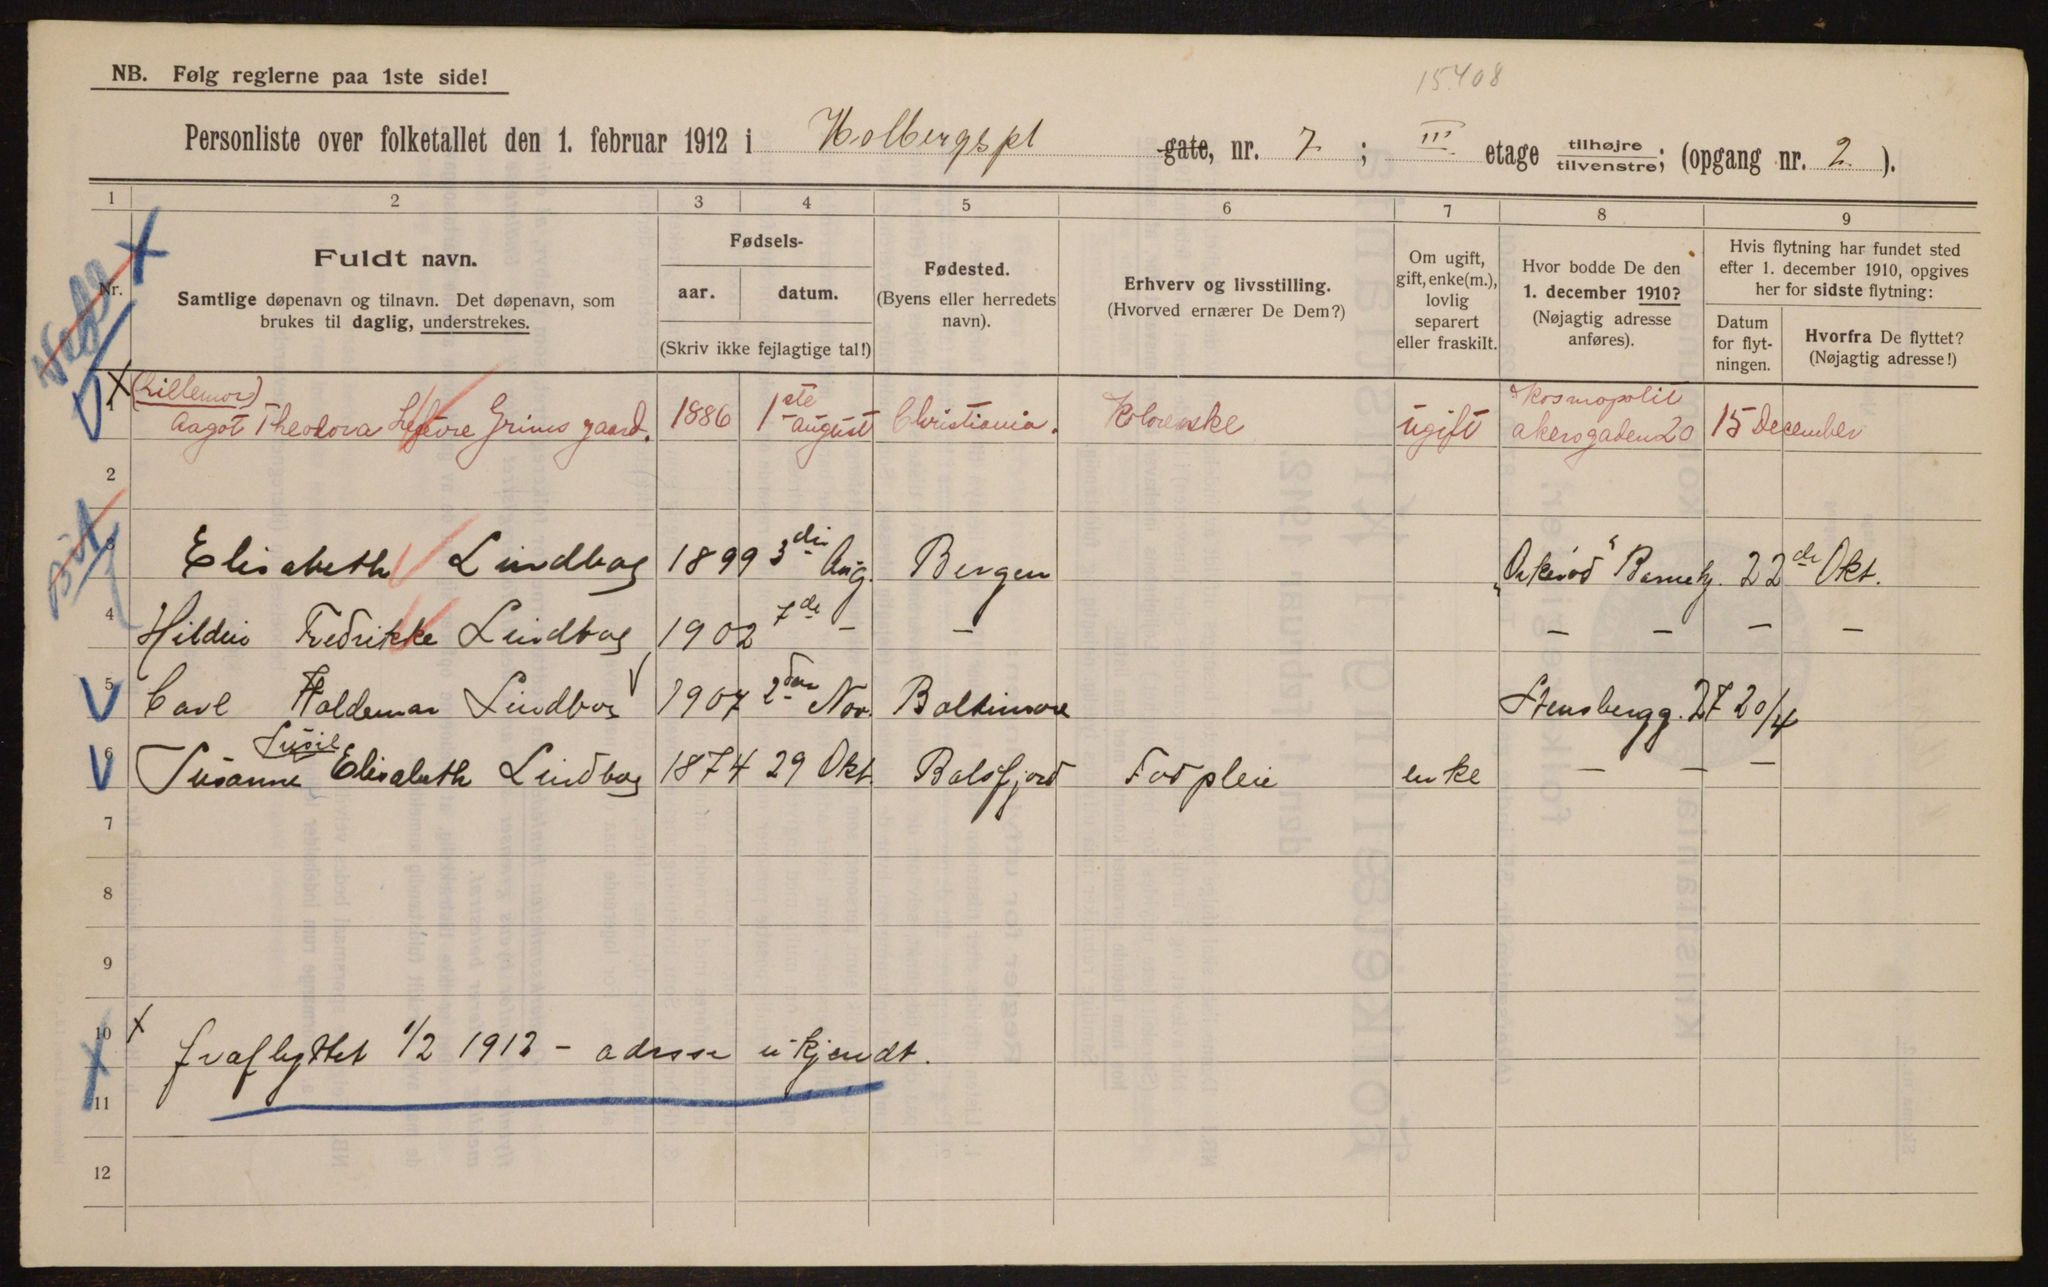 15408
NB. Følg reglerne paa 1ste side!
Personliste over folketallet den 1. februar 1912 i Holbergspl gate, nr. 7 ; III etage tilhøjre tilvenstre; (opgang nr. 2 ).
1 2 3 4 5 6 7 8 9
Nr.
Fuldt navn.
Samtlige døpenavn og tilnavn. Det døpenavn, som
brukes til daglig, understrekes.
Fødsels-
aar. datum.
(Skriv ikke fejlagtige tal!)
Fødested.
(Byens eller herredets
navn).
Erhverv og livsstilling.
(Hvorved ernærer De Dem?)
Om ugift,
gift, enke(m.),
lovlig
separert
eller fraskilt.
Hvor bodde De den
1. december 1910?
(Nøjagtig adresse
anføres).
Hvis flytning har fundet sted
efter 1. december 1910, opgives
her for sidste flytning:
Datum
for flyt-
ningen.
Hvorfra De flyttet?
(Nøjagtig adresse!)
(Lillemor) Kosmopolit
1 Aagot Theodora Lefevre Grimsgaard. 1886 1ste august Christiania. ugift akersgaden 20 15 December
2
3 Elisabeth Lindbog 1899 3die Aug. Bergen 22de Okt.
4 Fredrikke Lindbog 1902 7de — — — — — —
5 Carl Haldemar Lindbog 1907 2den Nov. Baltimore Stensbergg. 27 20/4
6 Susanne Elisabeth Lindbog 1874 29 Okt. Balsfjord Fodpleie enke — — —
7
8
9
10 x fraflyttet 1/2 1912 – adresse ukjendt.
11
12